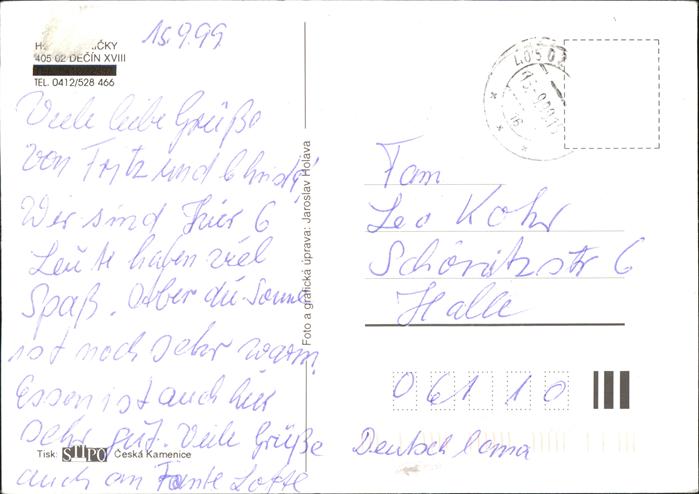 15.9.99
405 02 DĚČÍN XVIII
TEL. 0412/528 466
Viele liebe Grüße
von Fritz und
Wir sind hier 6
Leute haben viel
Spaß. Aber die Sonne
ist noch sehr warm
Essen ist auch hier
sehr gut. Viele Grüße
auch an Tante Lotte
Tisk: STIPO Česká Kamenice
Foto a grafická úprava: Jaroslav Holava
405 02
Fam
Leo Kohr
Halle
06110
Deutschland